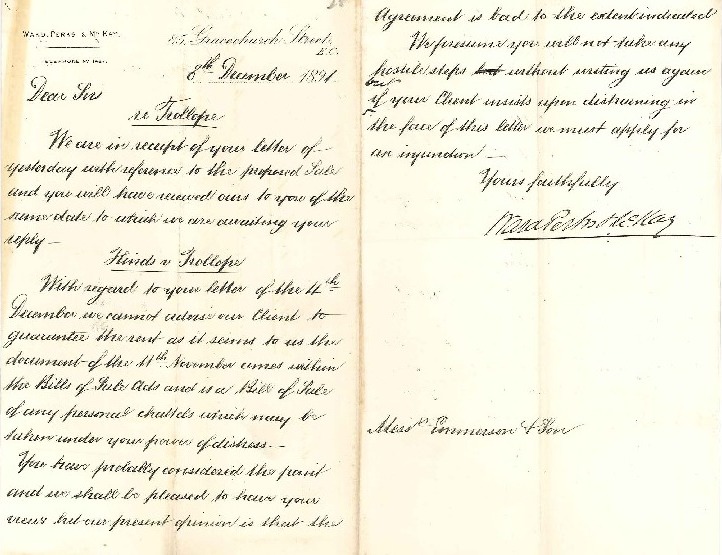 WARD, PERKS, & McKAY.
85, Gracechurch Street,
E.C.
TELEPHONE No
8th December 1891
Dear Sirs
re Trollope
We are in receipt of your letter of
yesterday with reference to the proposed Sale
and you will have received ours to you of the
same date to which we are awaiting your
reply —
Hinds v Trollope
With regard to your letter of the 4th
December we cannot advise our Client to
guarantee the rent as it seems to us the
document of the 11th November comes within
the Bills of Sale Acts and is a Bill of Sale
of any personal chattels which may be
taken under your power of distress. —
You have probally considered the point
and we shall be pleased to have your
views but our present opinion is that the
Agreement is bad to the extent indicated
We presume you will not take any
hostile steps but without writing us again
but
if your Client insists upon distraining in
the face of this letter we must apply for
an injunction —
Yours faithfully
Ward Perks & McKay
Messrs Emmerson & Son